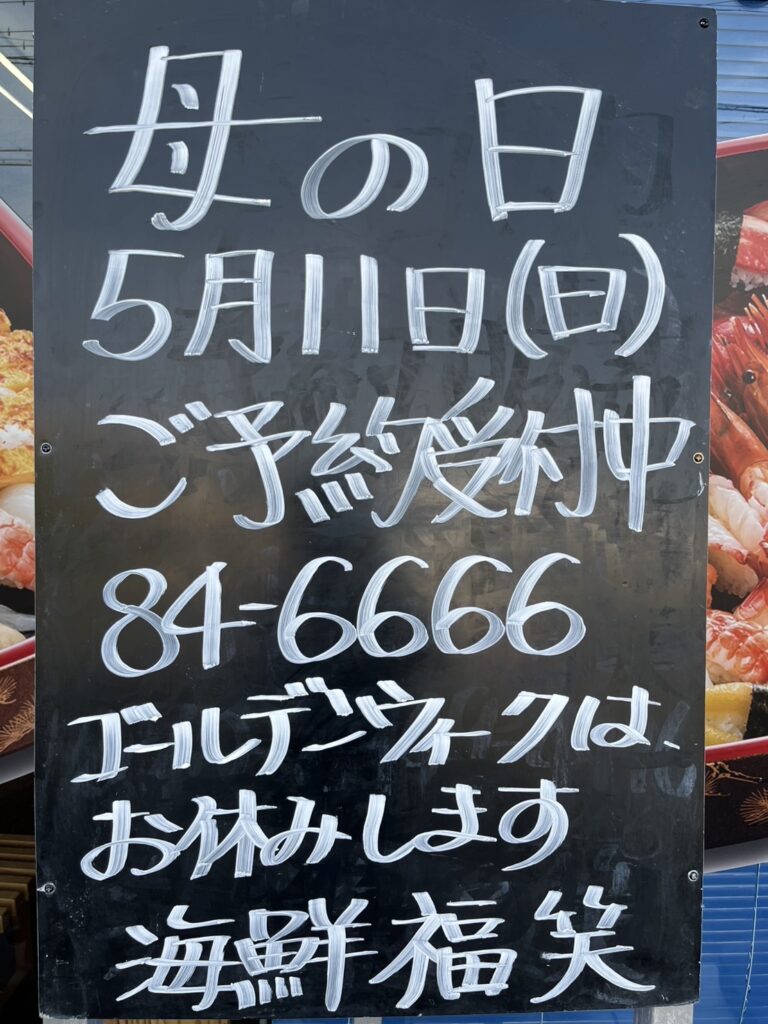 母の日
5月11日(日)
ご予約受付中
84-6666
ゴールデンウィークは、
お休みします
海鮮福笑